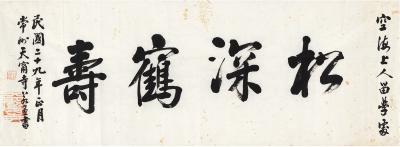 空海上人留學處
松深鶴壽
民國二十九年正月
常州天甯寺
書